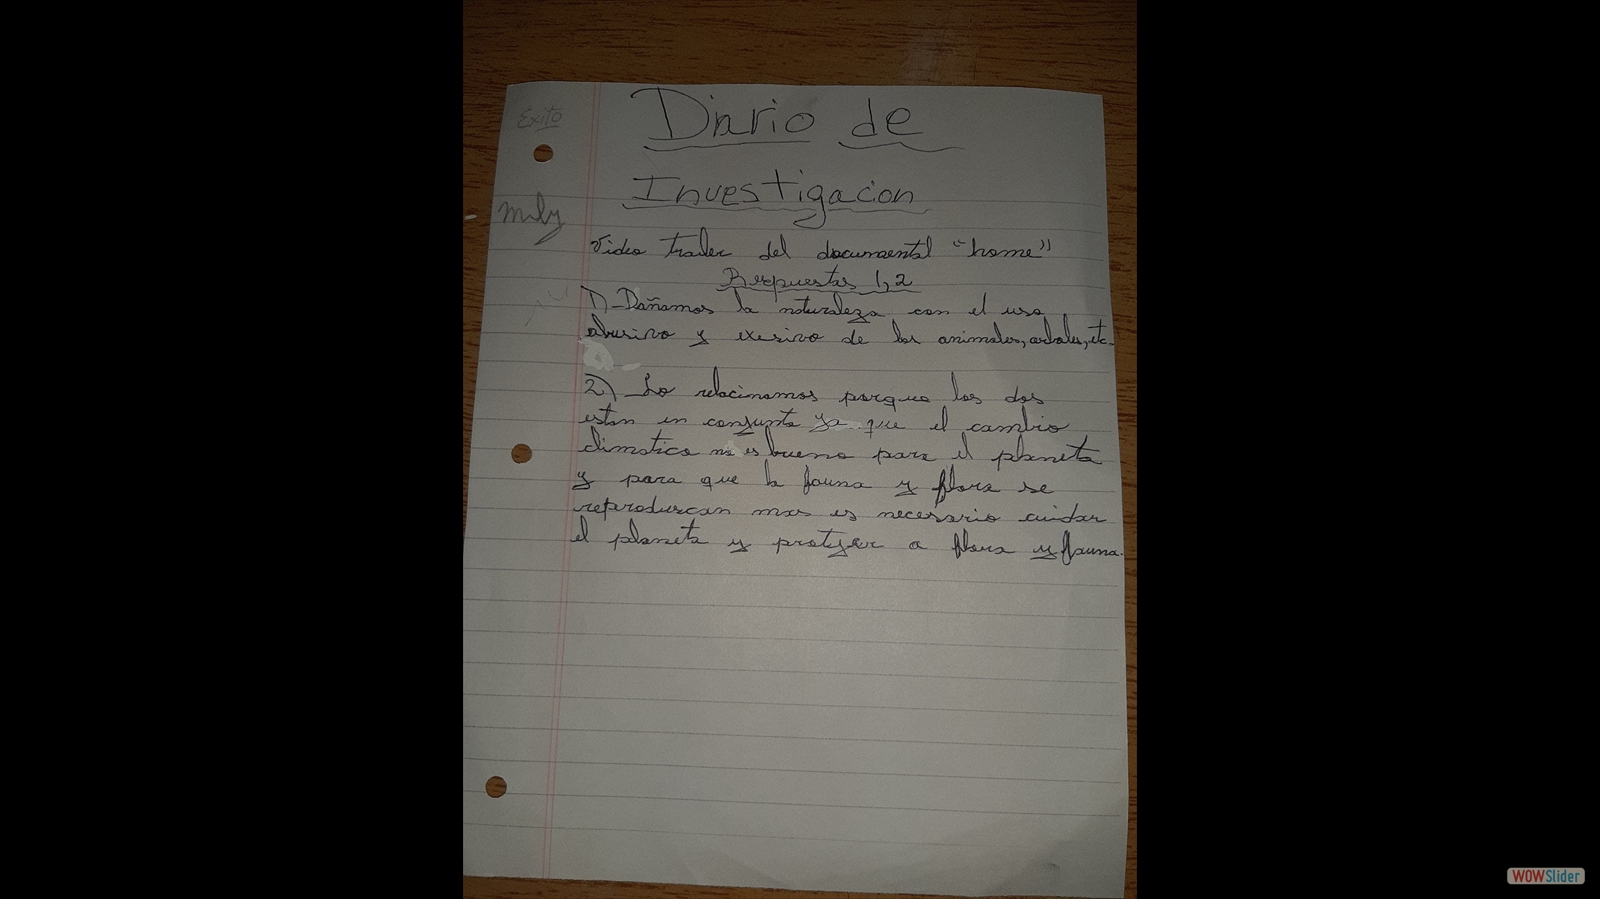 Exito
Diario de
Investigacion
mily
Video trailer del documental "home"
Respuestas 1,2
1)-Dañamos la naturaleza con el uso
abusivo y exesivo de los animales, arboles, etc.
2) Lo relacinamos porque los dos
estan en conjunto ya que el cambio
climatico no es bueno para el planeta
y para que la fauna y flora se
reproduscan mas es necesario cuidar
el planeta y protejer a flora y fauna.
WOWSlider